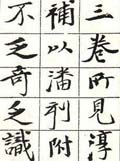 三卷所見淳
補以潘利附
不乏奇乏識